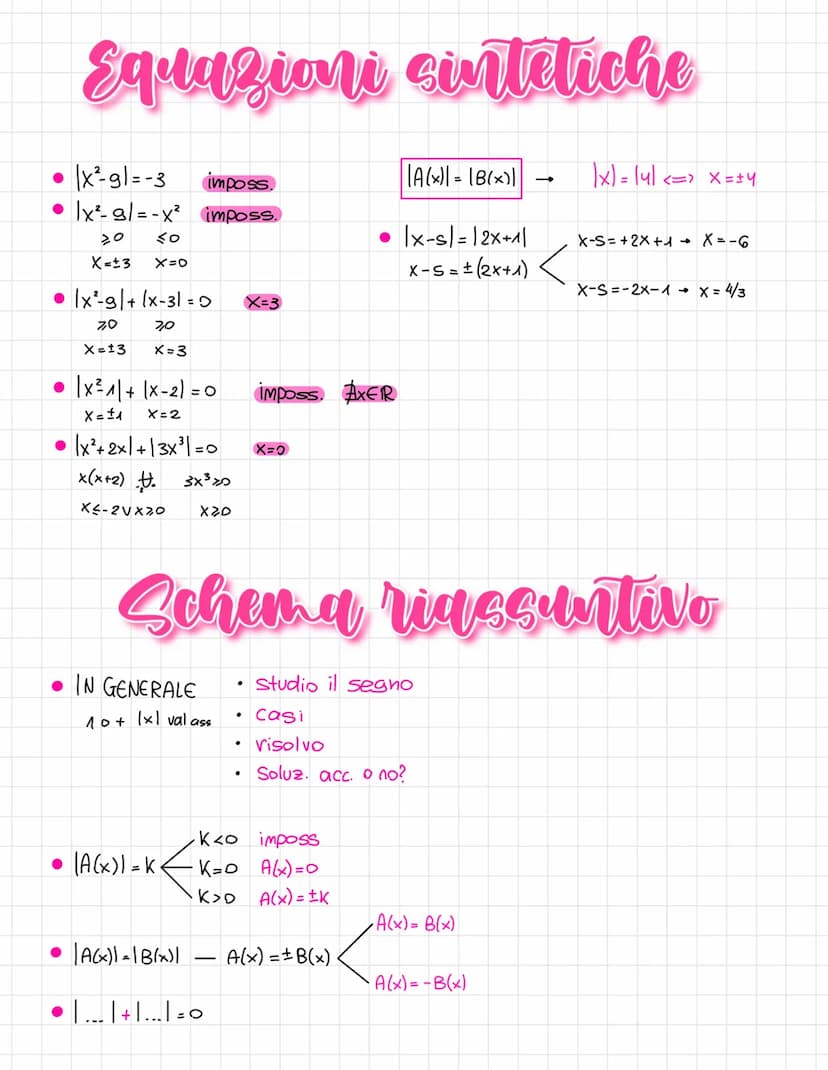 Equazioni sintetiche
• |x²-9|=-3 imposs.
• |x²-9|=-x² imposs.
≥0 ≤0
x=±3 x=0
• |x²-9|+|x-3|=0 x=3
≥0 ≥0
x=±3 x=3
• |x²-1|+|x-2|=0 imposs. ∄x∈ℝ
x=±1 x=2
• |x²+2x|+|3x³|=0 x=0
x(x+2) 3x³≥0
x≤-2 ∨ x≥0 x≥0
|A(x)|=|B(x)| → |x|=|y| <=> x=±y
• |x-5|=|2x+1|
x-5=±(2x+1)
x-5=+2x+1 → x=-6
x-5=-2x-1 → x=4/3
Schema riassuntivo
• IN GENERALE
1 o + |x| val ass
• studio il segno
• casi
• risolvo
• Soluz. acc. o no?
• |A(x)|=K
K<0 imposs
K=0 A(x)=0
K>0 A(x)=±K
• |A(x)|=|B(x)| — A(x)=±B(x)
A(x)=B(x)
A(x)=-B(x)
• |...|+|...|=0